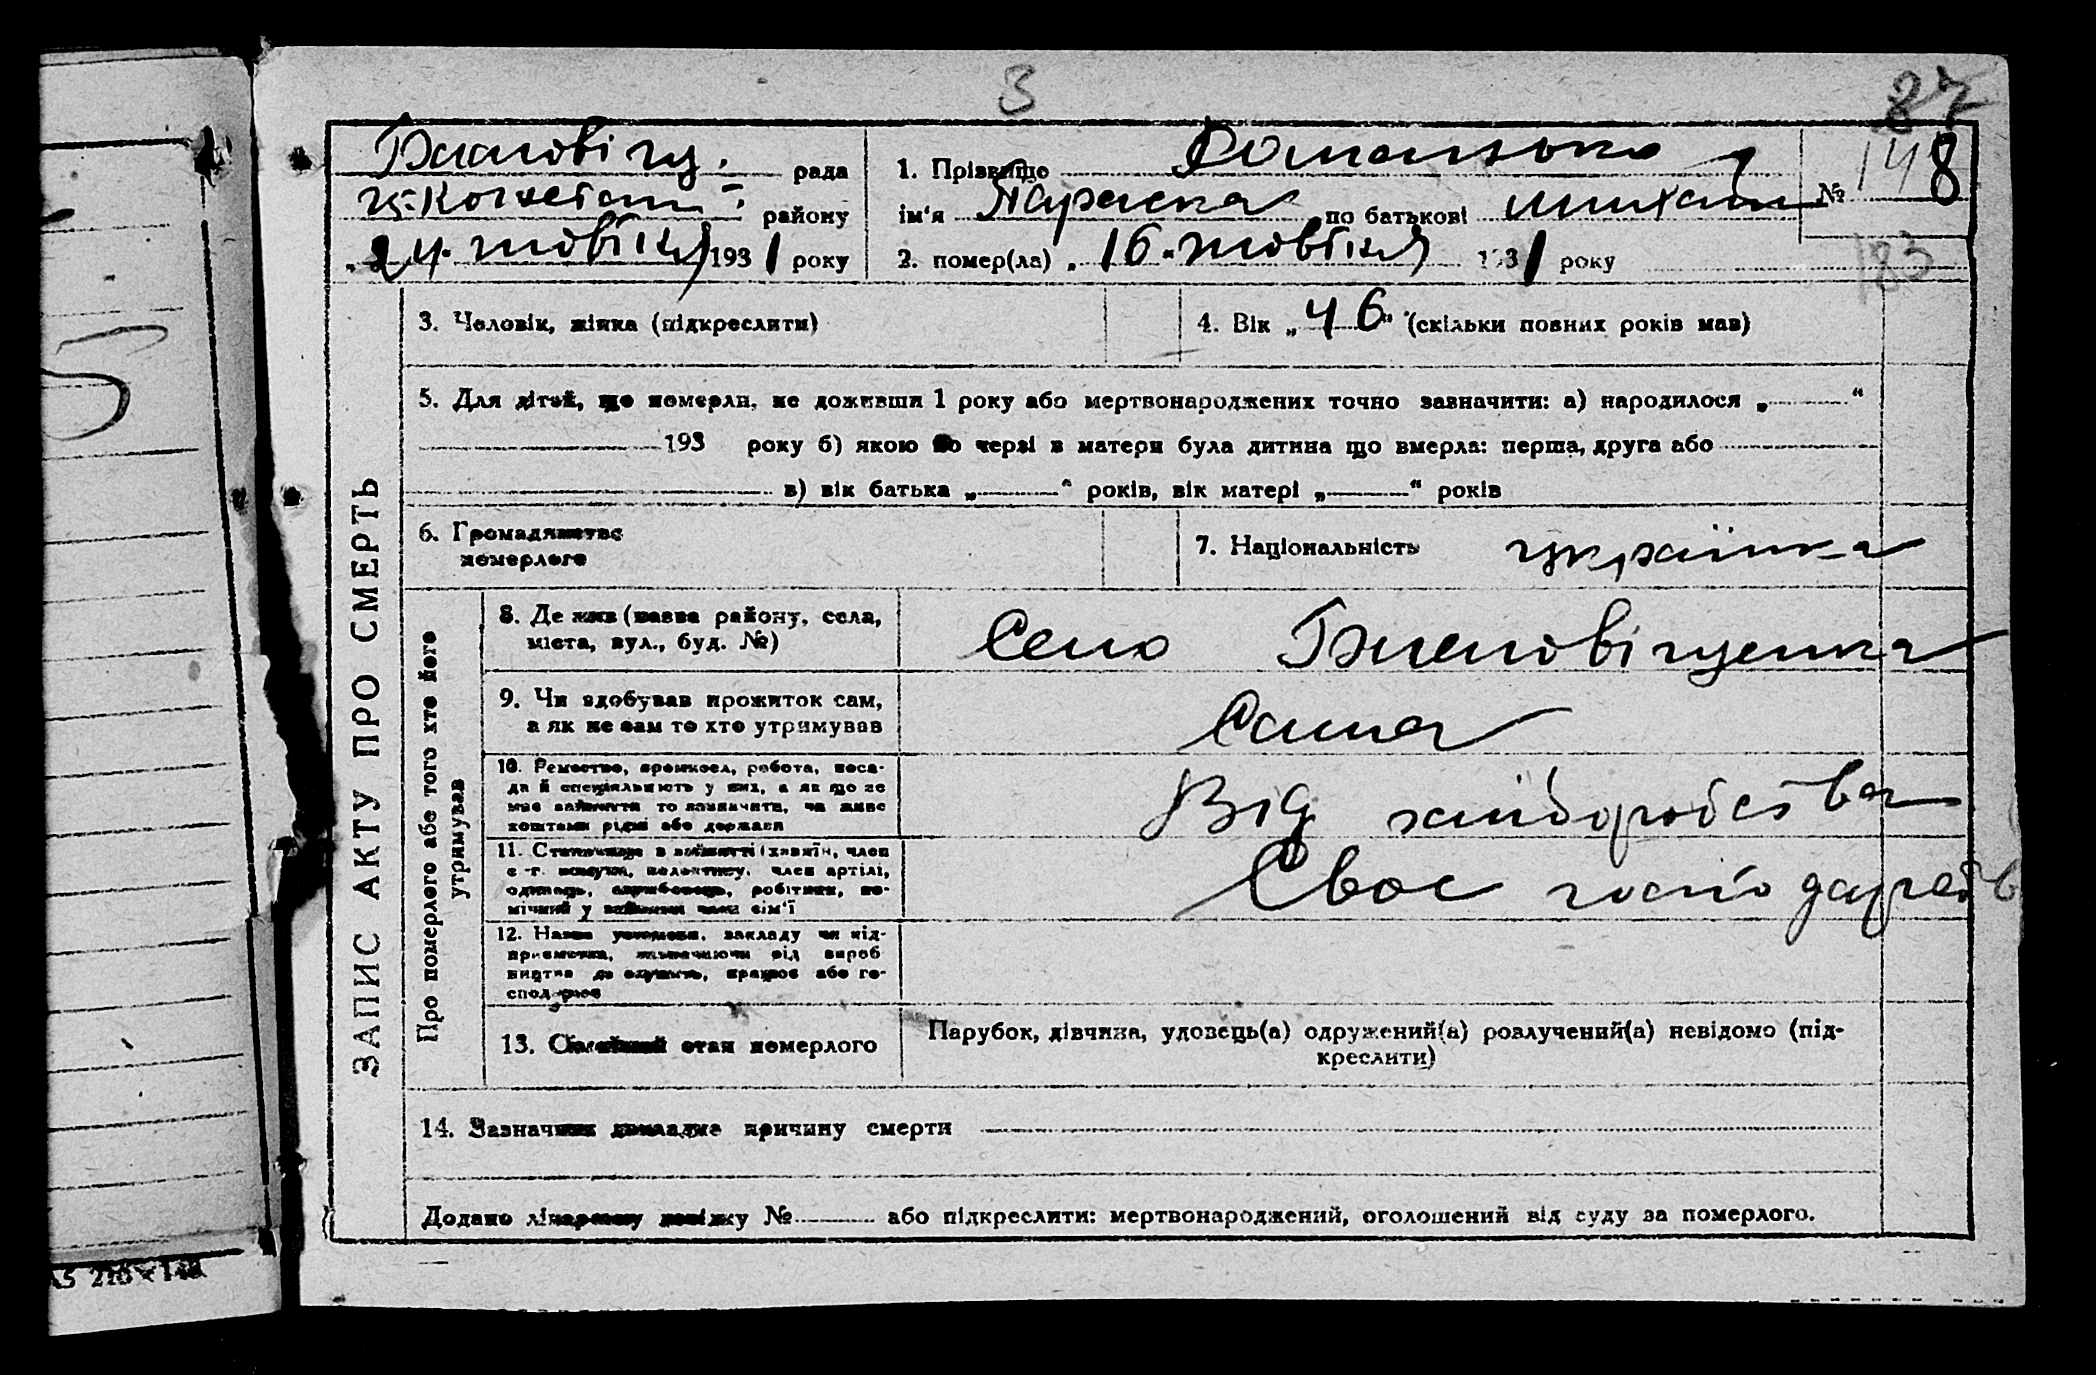 3
87
рада
району
24 жовтня 1931 року
1. Прізвище Романько
ім'я Параска по батькові
2. помер(ла) „16“ жовтня 1931 року
№ 148
183
ЗАПИС АКТУ ПРО СМЕРТЬ
3. Чоловік, жінка (підкреслити)
4. Вік „46“ (скільки повних років мав)
5. Для дітей, що померли, не доживши 1 року або мертвонароджених точно зазначити: а) народилося „ “
193 року б) якою по черзі в матери була дитина що вмерла: перша, друга або
в) вік батька „ “ років, вік матері „ “ років
6. Громадянство
померлого
7. Національність українка
Про померлого або того хто його
утримував
8. Де жив (назва району, села,
міста, вул., буд. №)
Село
9. Чи здобував прожиток сам,
а як не сам то хто утримував
Сама
10. Ремество, промисел, робота, поса-
да й спеціяльність у них, а як що не
мав заняття то зазначити, чи живе
коштами рідні або держави
Від хліборобства
11. Становище в занятті (хазяїн, член
с.-г. комуни, колективу, член артілі,
одинець, службовець, робітник, по-
мічний у занятті член сім'ї
Своє господарств
12. Назва установи, закладу чи під-
приємства, зазначаючи рід вироб
ництва де служить, працює або го-
13. Сімейний стан померлого
Парубок, дівчина, удовець(а) одружений(а) розлучений(а) невідомо (під-
креслити)
14. Зазначити докладно причину смерти
Додано лікарську довідку № або підкреслити: мертвонароджений, оголошений від суду за померлого.
А5 210×148